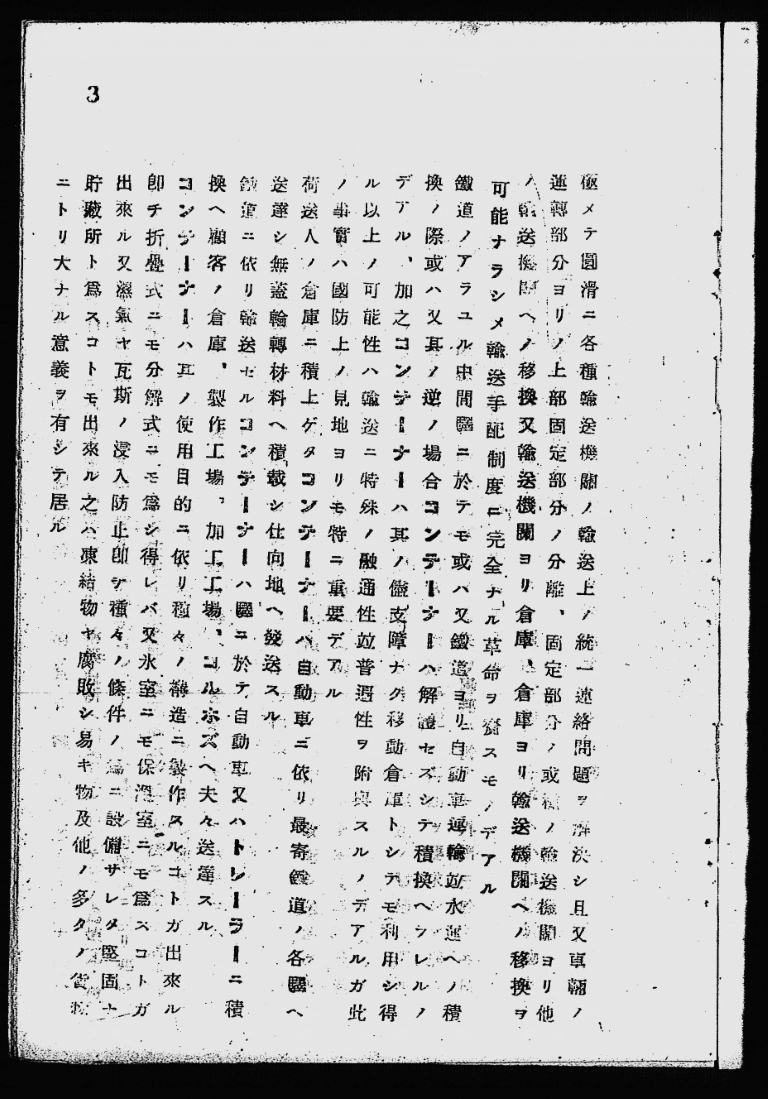 3
極メテ圓滑ニ各種輸送機關ノ輸送上ノ統一連絡問題ヲ解決シ且又車輛ノ
運轉部分ヨリノ上部固定部分ノ分離、固定部分ノ或種ノ輸送機關ヨリ他
ノ輸送機關ヘノ移換又輸送機關ヨリ倉庫、倉庫ヨリ輸送機關ヘノ移換ヲ
可能ナラシメ輸送手配制度ニ完全ナル革命ヲ齎スモノデアル
鐵道ノアラユル中間驛ニ於テモ或ハ又鐵道ヨリ自動車運輸竝水運ヘノ積
換ノ際或ハ又其ノ逆ノ場合コンテーナーハ解體セズシテ積換ヘラレルノ
デアル、加之コンテーナーハ其ノ儘支障ナク移動倉庫トシテモ利用シ得
ル以上ノ可能性ハ輸送ニ特殊ノ融通性竝普遍性ヲ附與スルノデアルガ此
ノ事實ハ國防上ノ見地ヨリモ特ニ重要デアル
荷送人ノ倉庫ニ積上ゲタコンテーナーハ自動車ニ依リ最寄鐵道ノ各驛ヘ
送達シ無蓋輪轉材料ヘ積載シ仕向地ヘ發送スル
鐵道ニ依リ輸送セルコンテーナーハ驛ニ於テ自動車又ハトレーラーニ積
換ヘ顧客ノ倉庫、製作工場、加工工場、コルホズヘ夫々送達スル
コンテーナーハ其ノ使用目的ニ依リ種々ノ構造ニ製作スルコトガ出來ル
卽チ折疊式ニモ分解式ニモ爲シ得レバ又氷室ニモ保溫室ニモ爲スコトガ
出來ル又濕氣ヤ瓦斯ノ浸入防止卽チ種々ノ條件ノ爲ニ設備サレタ堅固ナ
貯藏所ト爲スコトモ出來ル之ハ凍結物ヤ腐敗シ易キ物及他ノ多クノ貨物
ニトリ大ナル意義ヲ有シテ居ル